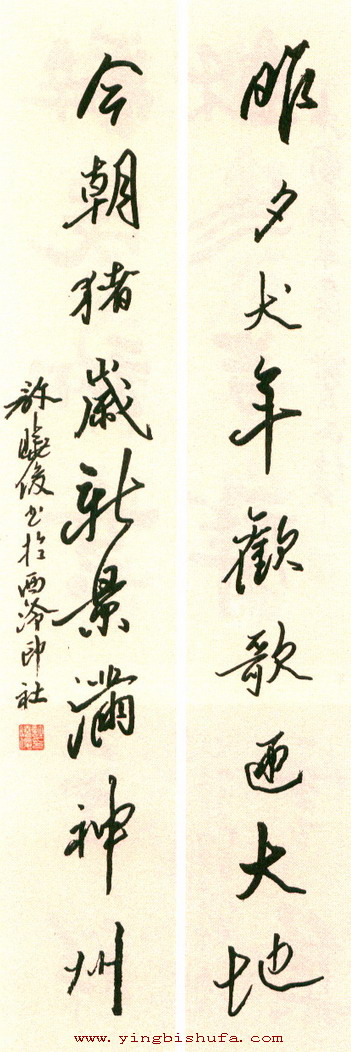 昨夕犬年歡歌迊大地
今朝猪歲新景滿神州
許曉俊书於西泠印社
www.yingbishufa.com